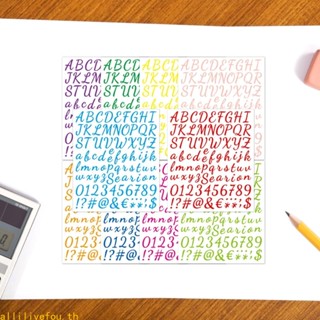 ABCD ABCD ABCD ABCDEFGHI
JKLM JKLM JKLM JKLMNOPQR
STUV STUV STUV STUVWXYZ
abcd
ABCDEFGHI ABCDEFGHI
JKLMNOPQR JKLMNOPQR
STUVWXYZ STUVWXYZ
abcdefghijk abcdefghijk
lmnopqrstu lmnopqrstu
vwxyz Searion vwxyz Searion
0123456789 0123456789
!?#@&€ $ !?#@&€ $
lmno lmno lmno lmnopqrstu
wxyz vwxyz vwxyz vwxyz Searion
0123 0123 0123 0123456789
!?#@ !?#@ !?#@ !?#@&€ $
allilivefou.th